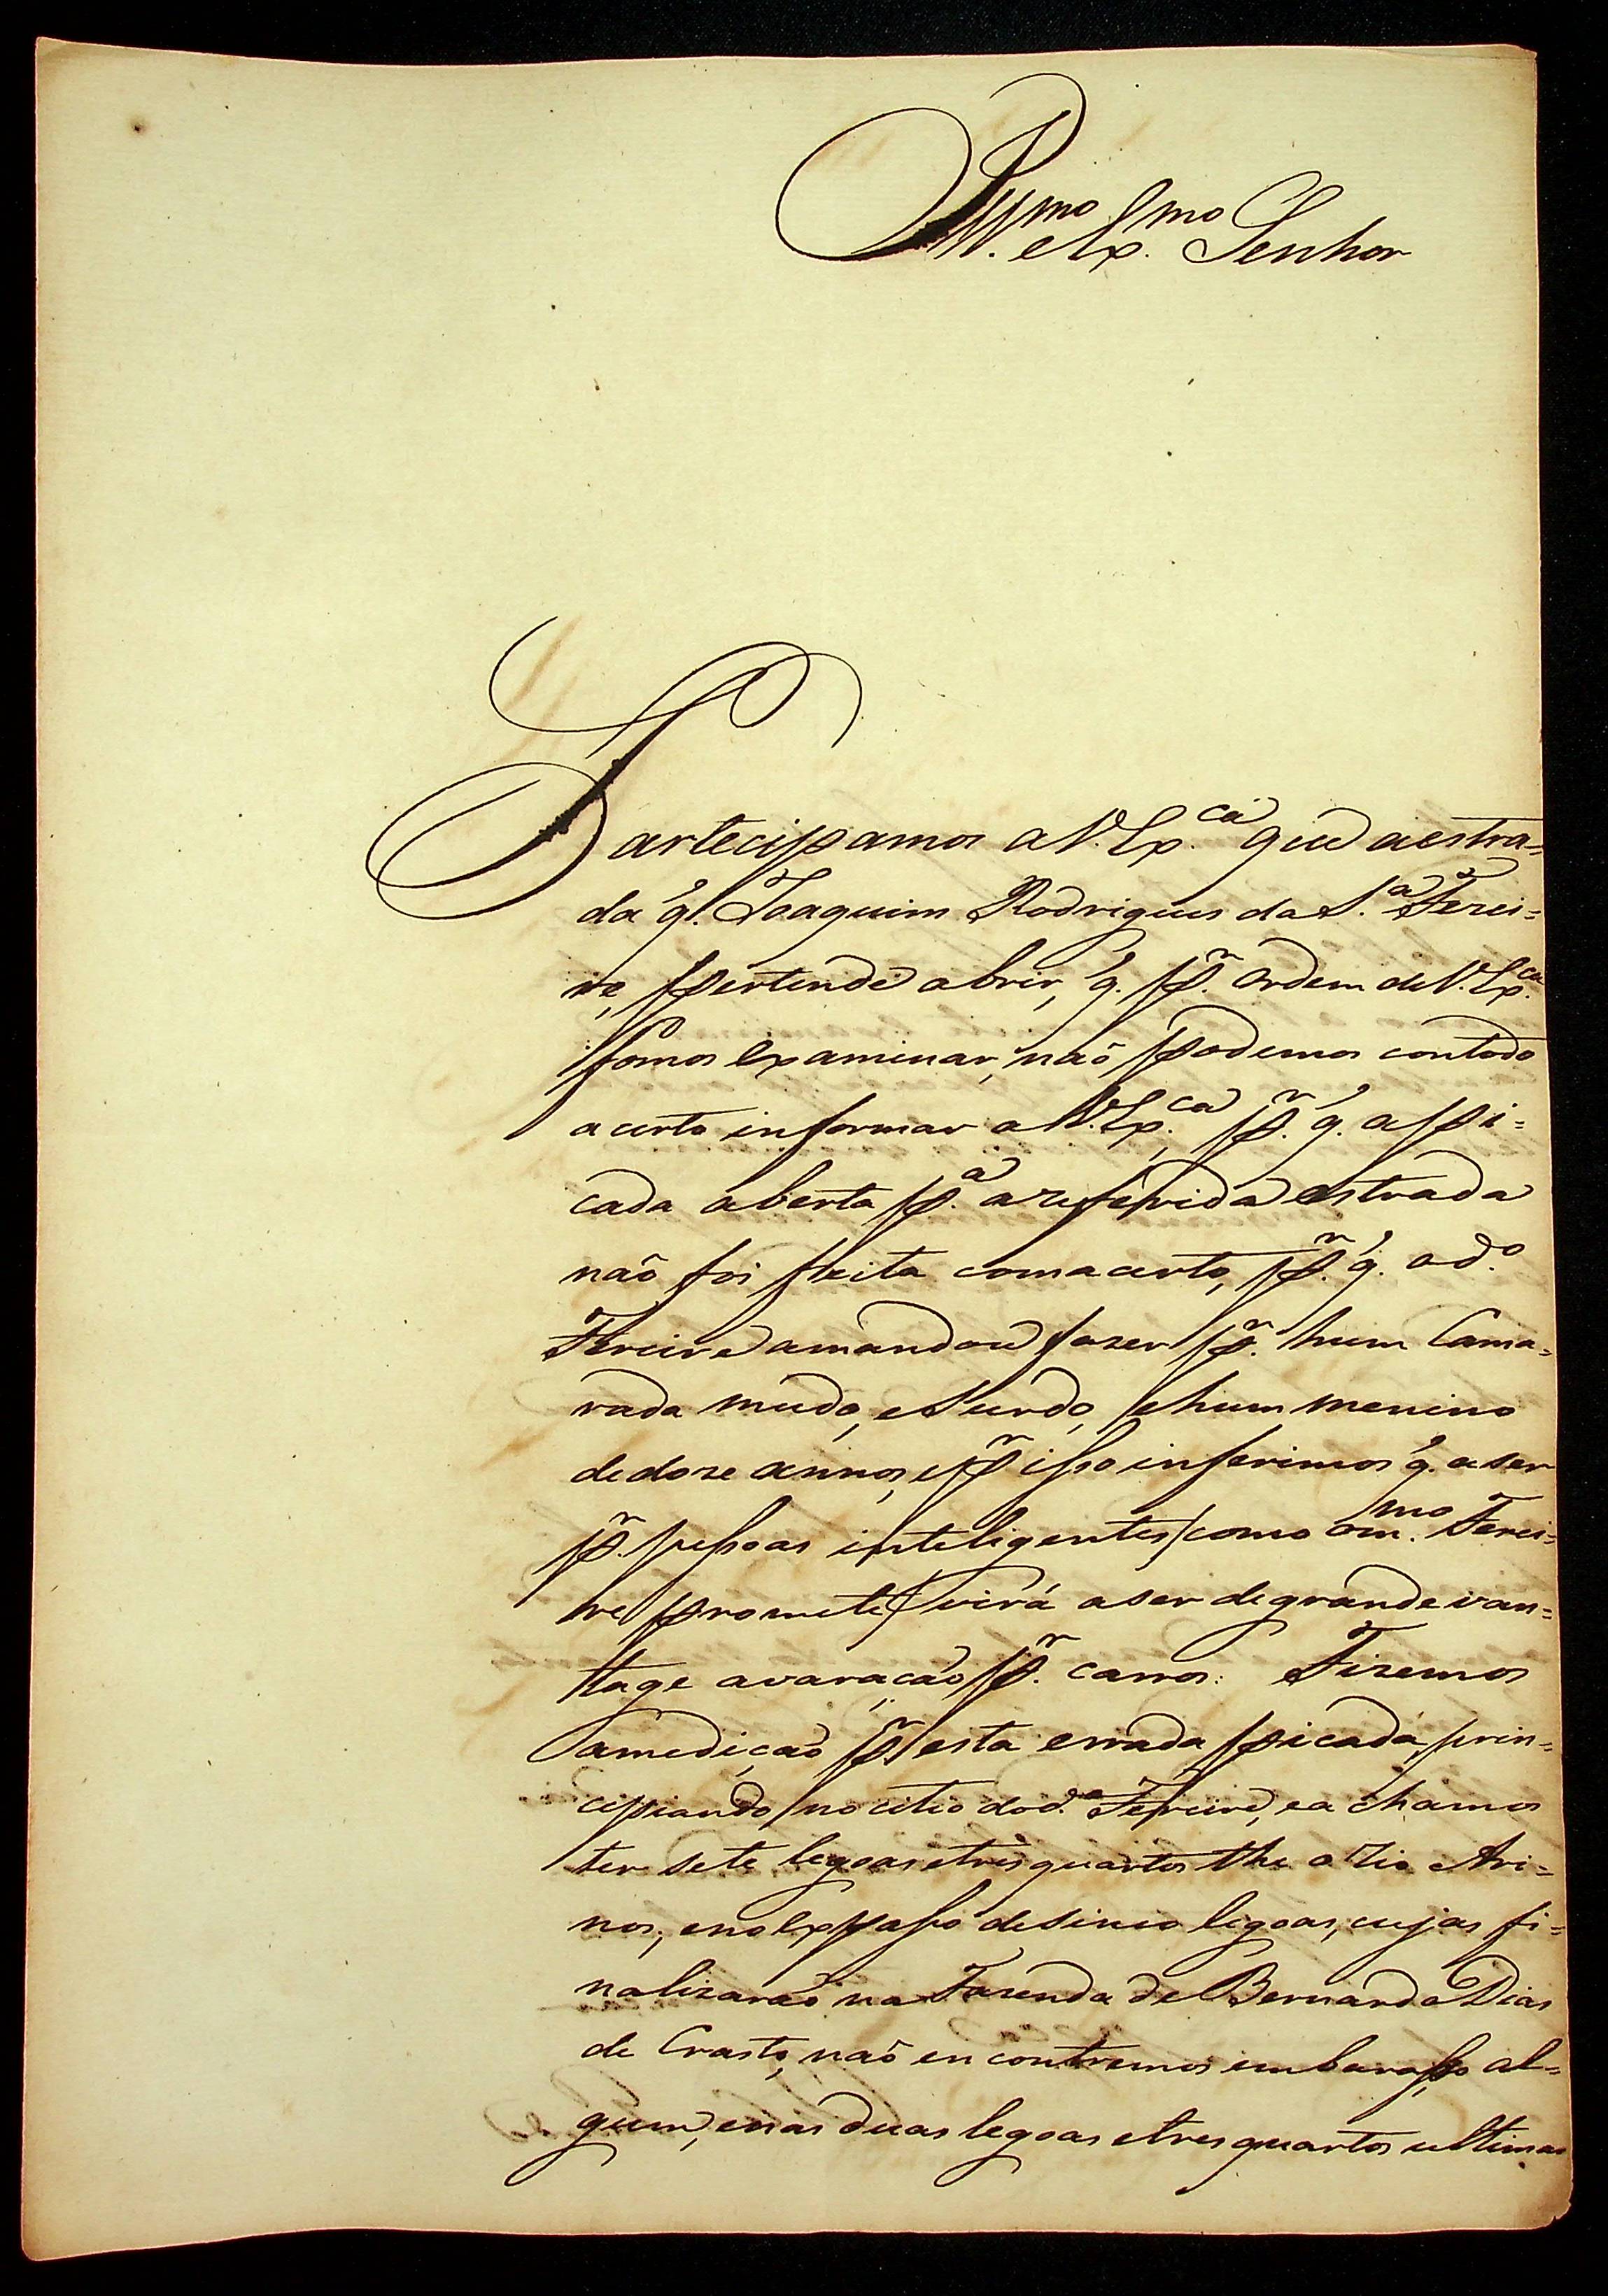 Illmo. e Exmo. Senhor
Partecipamos a V. Exca. que a estra=
da q'. Joaquim Rodrigues da S.a Ferei=
re, pertende abrir, q'. pr. ordem de V. Exca.
fomos examinar, não podemos com todo
acerto informar a V. Exca. pr. q'. a pi=
cada aberta p.a a referida estrada
não foi feita com acerto, pr. q'. o d.o
Fereire a mandou faser pr. hum Cama=
rada mudo, e Surdo, e hum menino
de dose annos, e pr. isso inferimos q'. a ser
pr. pessoas inteligentes (como o m.mo Ferei=
re promete) virá a ser de grande van=
tage a varação pr. carros: Fisemos
a medição pr. esta errada picada, prin=
cipiando no citio do d.o Fereire, e a chamos
ter sete legoas e três quartos the o rio Ari=
nos, e no expasso de sinco legoas, cujas fi=
nalisarão na Fasenda de Bernardo Dias
de Crasto, não encontremos embarasso al=
gum, e nas duas legoas e tres quartos ultimas